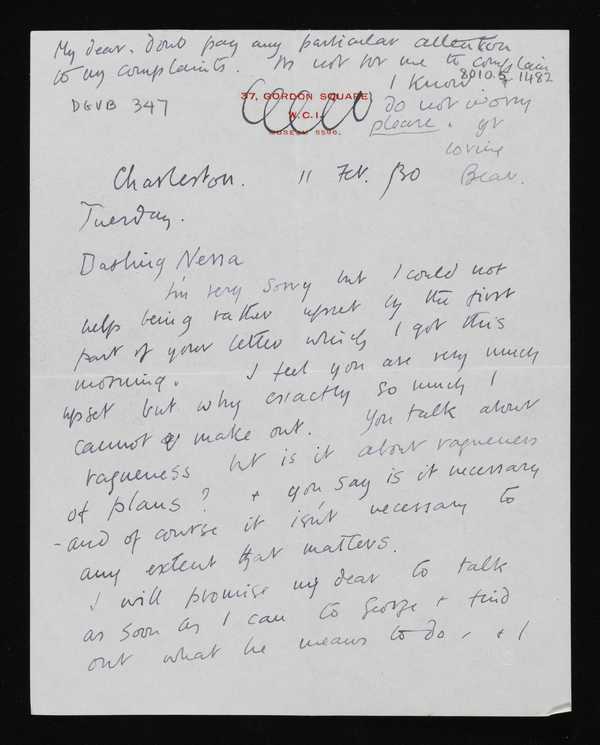 My dear. dont pay any particular attention
to my complaints. Its not for me to complain
I know &
8010.5.1482
DGVB 347
37, GORDON SQUARE,
W.C.1.
MUSEUM
do not worry
please. yr
loving
Bear.
Charleston. 11 Feb. 30
Tuesday.
Darling Nessa
I'm very sorry but I could not
help being rather upset by the first
part of your letter which I got this
morning. I feel you are very much
upset but why exactly so much I
cannot make out. You talk about
vagueness but is it about vagueness
of plans? + you say is it necessary
- and of course it isn't necessary to
any extent that matters.
I will promise my dear to talk
as soon as I can to George + find
out what he means to do, + I